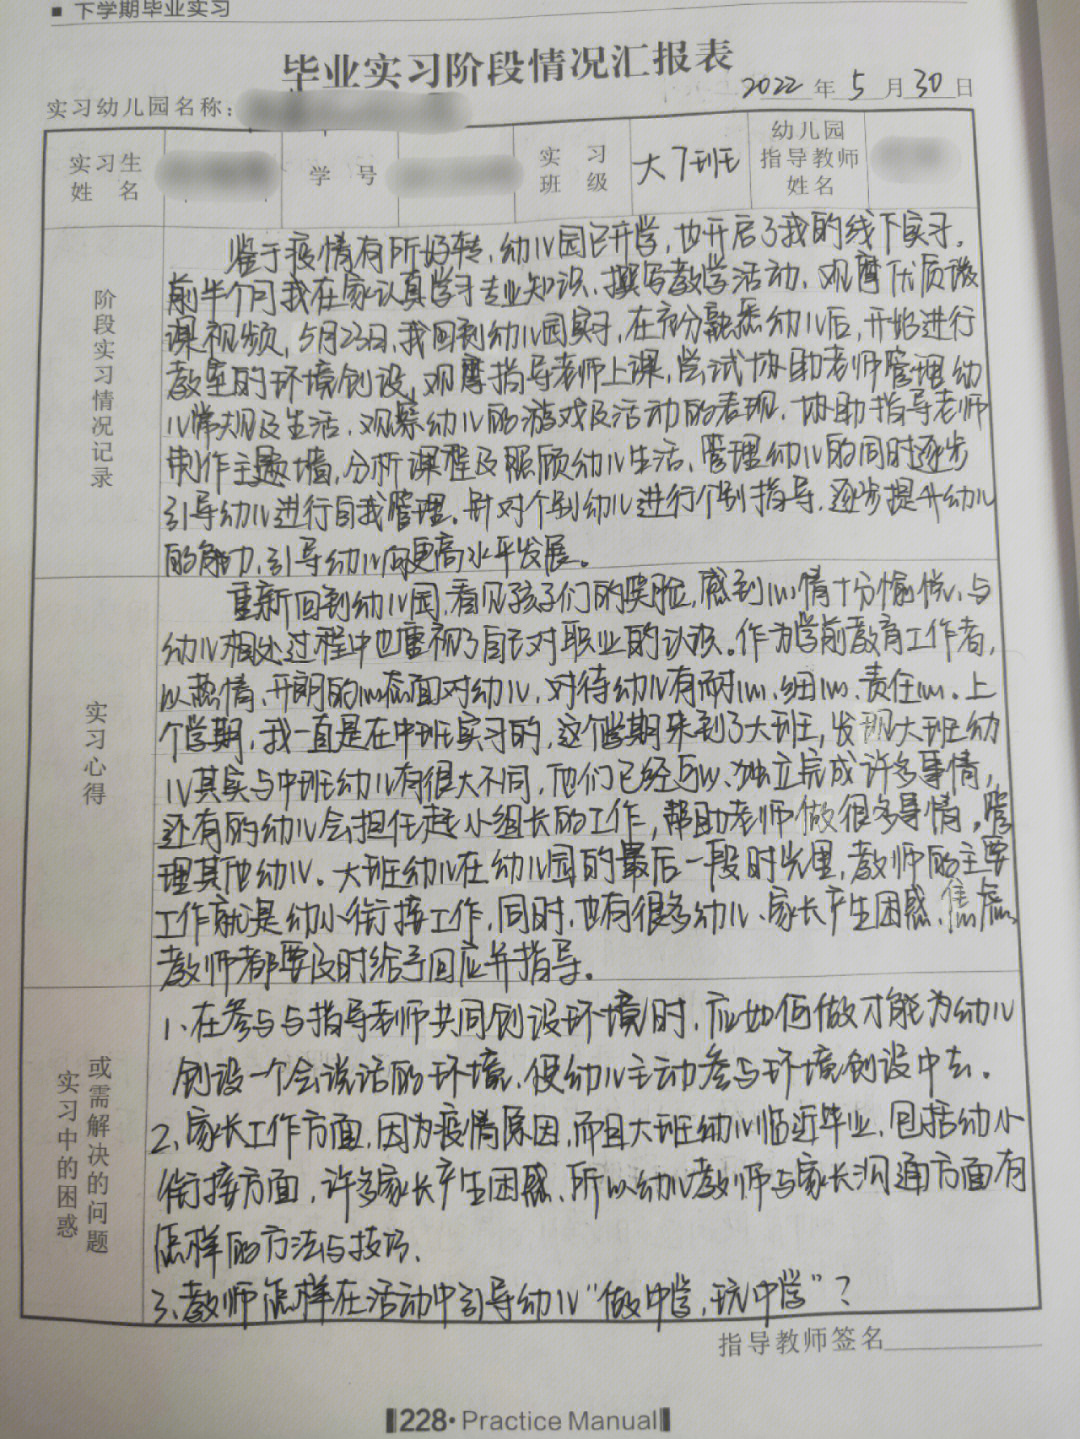 ■ 下学期毕业实习
毕业实习阶段情况汇报表
2022 年 5 月 30 日
实习幼儿园名称:
实习生姓名 学号 实习班级 大7班 幼儿园指导教师姓名
阶段实习情况记录
鉴于疫情有所好转,幼儿园已开学,也开启了我的线下实习。
前半个月我在家认真学习专业知识、撰写教学活动、观摩优质微
课视频,5月23日,我回到幼儿园实习,在充分熟悉幼儿后,开始进行
教室的环境创设,观摩指导老师上课,尝试协助老师管理幼
儿常规及生活、观察幼儿的游戏及活动的表现,协助指导老师
制作主题墙,分析课程及照顾幼儿生活,管理幼儿的同时逐步
引导幼儿进行自我管理。针对个别幼儿进行个别指导,逐步提升幼儿
的能力,引导幼儿向更高水平发展。
实习心得
重新回到幼儿园,看见孩子们的笑脸,感到心情十分愉悦、与
幼儿相处过程中也重视了自己对职业的认识。作为学前教育工作者,
以热情、开朗的心态面对幼儿,对待幼儿有耐心、细心、责任心。上
个学期,我一直是在中班实习的,这个学期来到了大班,发现大班幼
儿其实与中班幼儿有很大不同,他们已经可以独立完成许多事情,
还有的幼儿会担任起小组长的工作,帮助老师做很多事情,管
理其他幼儿。大班幼儿在幼儿园的最后一段时光里,教师的主要
工作就是幼小衔接工作,同时,也有很多幼儿、家长产生困惑、焦虑,
教师都要及时给予回应并指导。
实习中的困惑
或需解决的问题
1、在参与与指导老师共同创设环境时,应如何做才能为幼儿
创设一个会说话的环境,使幼儿主动参与环境创设中去。
2、家长工作方面,因为疫情原因,而且大班幼儿临近毕业,包括幼小
衔接方面,许多家长产生困惑,所以幼儿教师与家长沟通方面有
怎样的方法与技巧。
3、教师怎样在活动中引导幼儿“做中学,玩中学”?
指导教师签名
228·Practice Manual